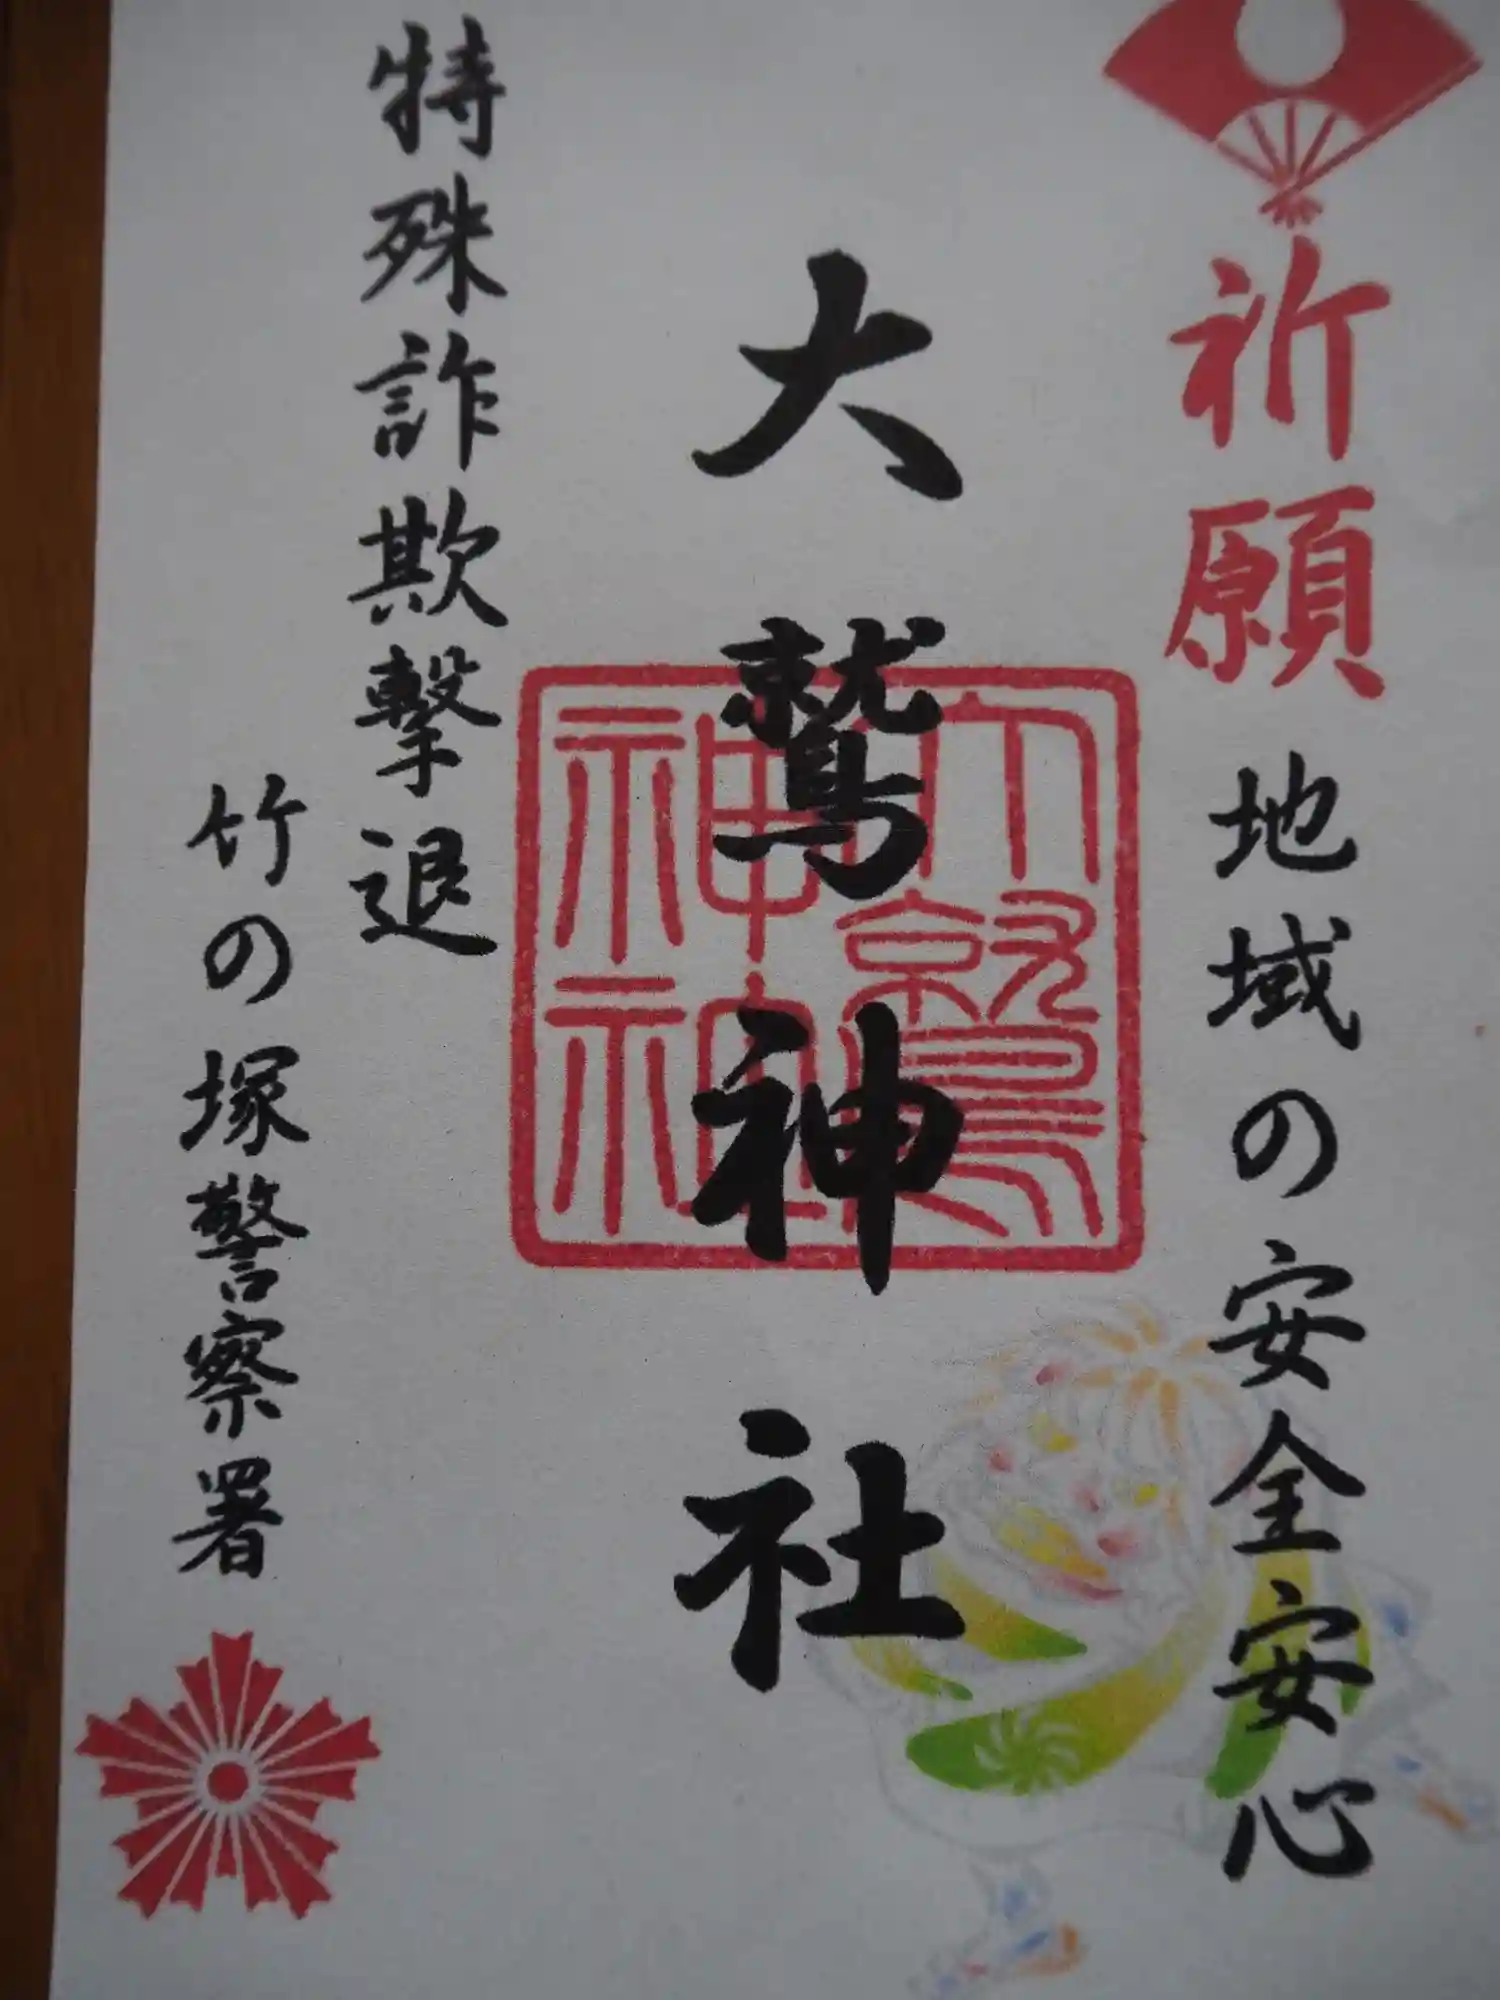 祈願 地域の安全安心
大鷲神社
大鷲神社神社
特殊詐欺撃退
竹の塚警察署